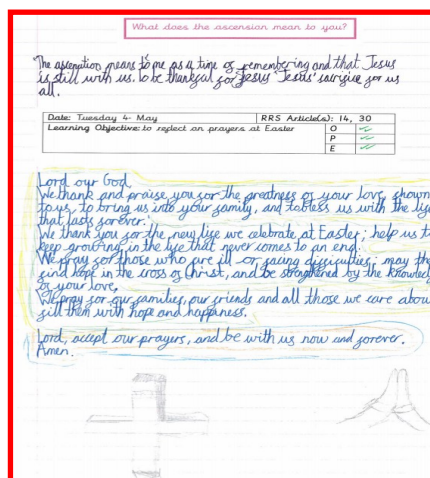 What does the ascension mean to you?
The ascenstion means to me as a time of remembering and that Jesus
is still with us, to be thankful for Jesus' Jesus' sacrifice for us
all.
Date: Tuesday 4th May RRS Article(s): 14, 30
Learning Objective: to reflect on prayers at Easter O
P
E
Lord our God
We thank and praise you for the greatness of your love, shown
to us, to bring us into your family, and to bless us with the life
that lasts forever.
We thank you for the new life we celebrate at Easter; help us to
keep growing in the life that never comes to an end.
We pray for those who are ill or facing difficulties; may they
find hope in the cross of Christ, and be strengthened by the knowled
of your love.
We pray for our families, our friends and all those we care abou
fill them with hope and happiness.
Lord, accept our prayers, and be with us now and forever.
Amen.